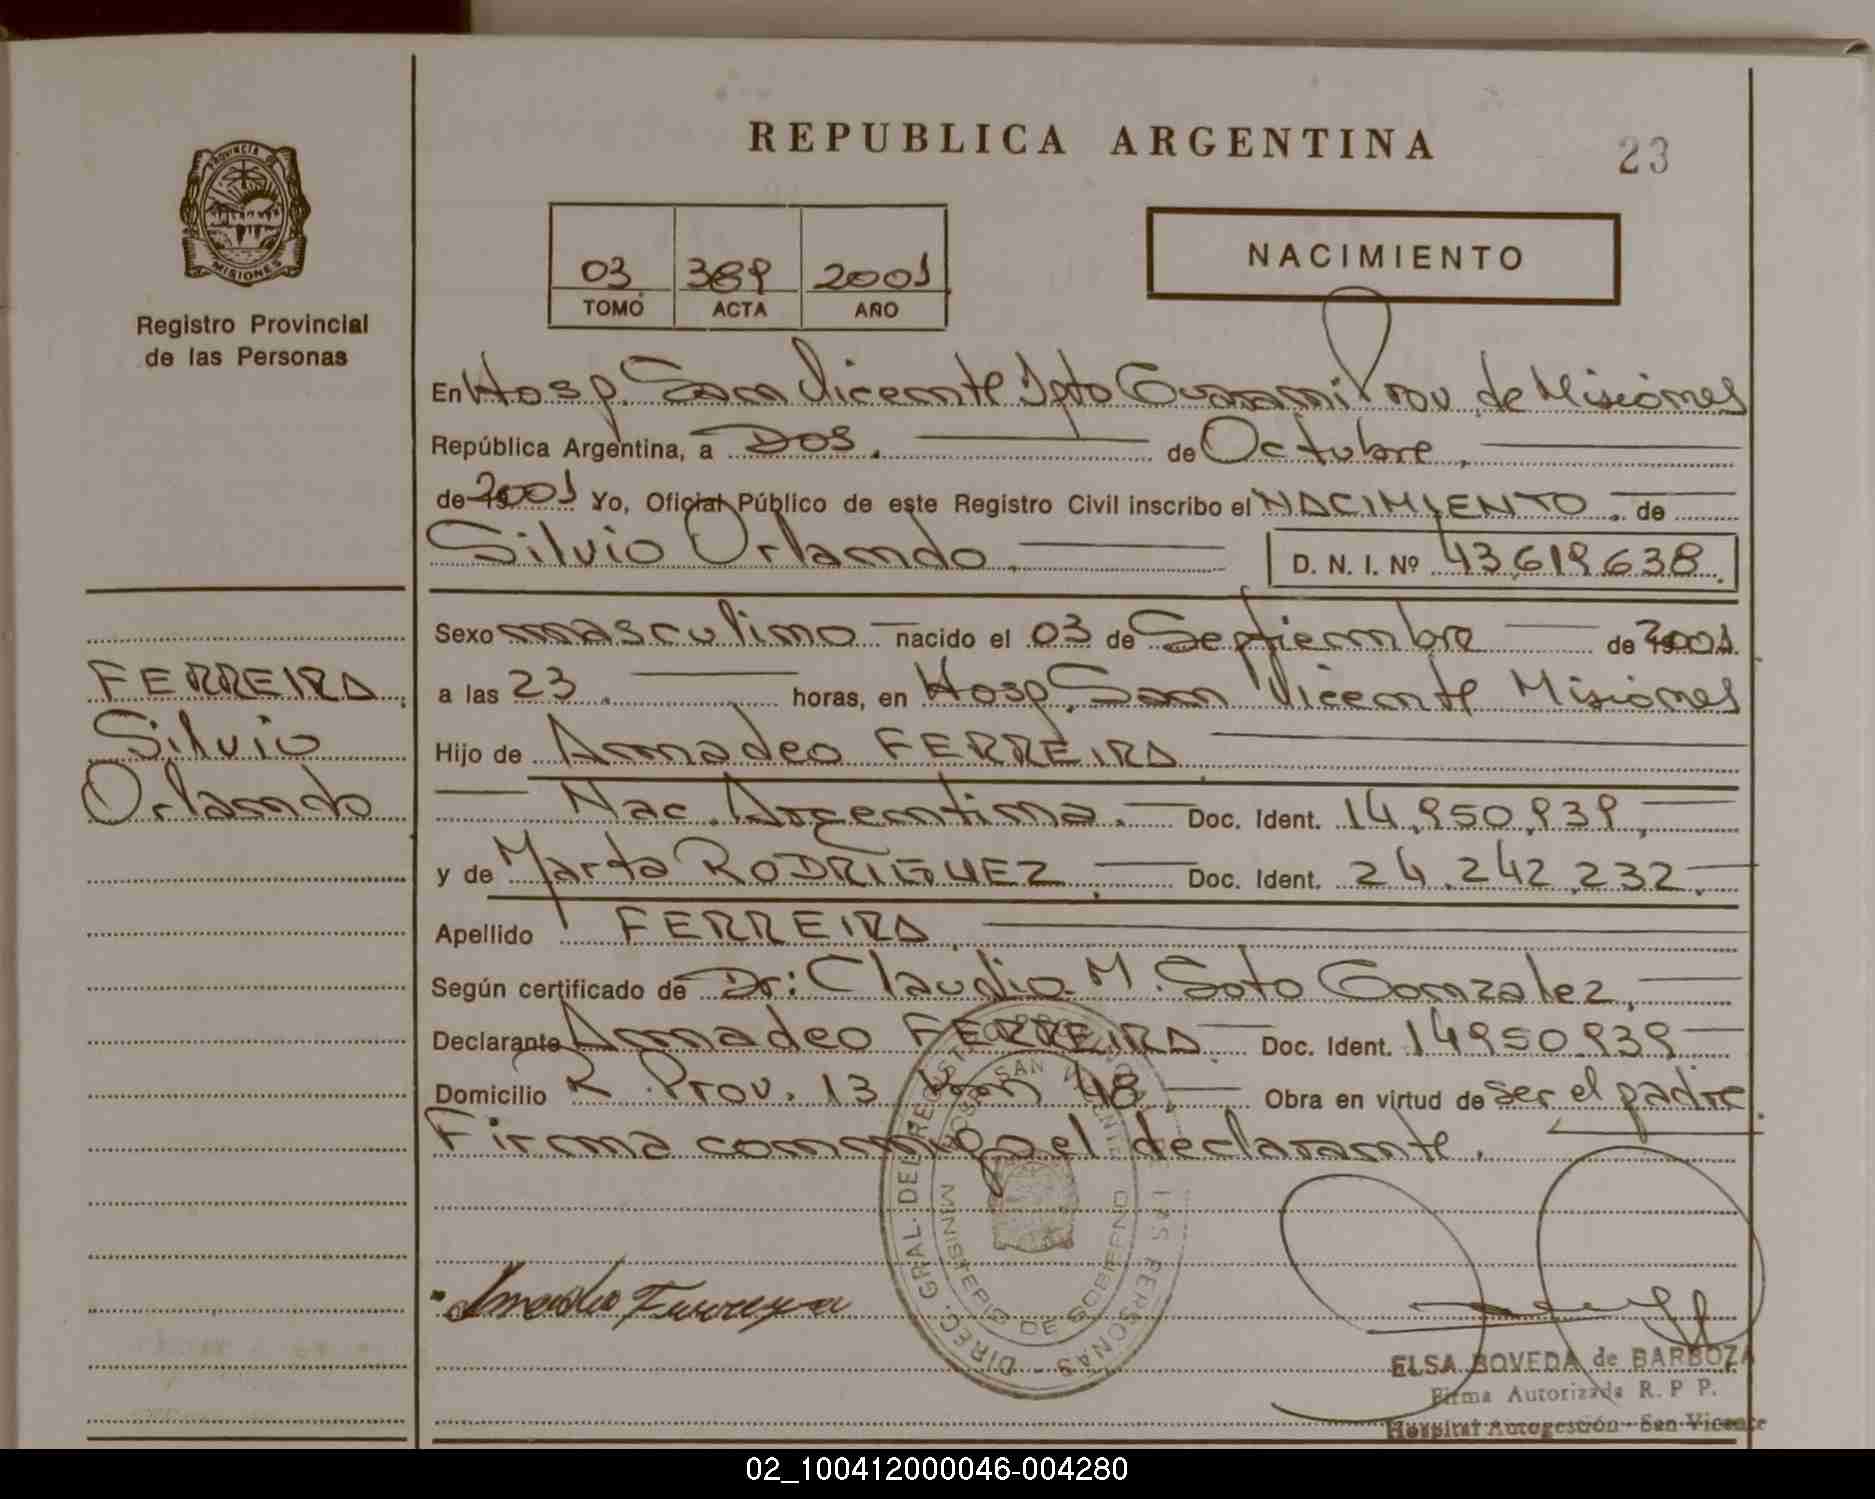 REPUBLICA ARGENTINA
23
PROVINCIA DE
MISIONES
Registro Provincial
de las Personas
03 389 2001
TOMO ACTA AÑO
NACIMIENTO
En Hosp. San Vicente Dpto Guarani Prov. de Misiones
República Argentina, a Dos. de Octubre,
de 2001 Yo, Oficial Público de este Registro Civil inscribo el NACIMIENTO. de
Silvio Orlando. D. N. I. Nº 43.619.638.
Sexo masculino nacido el 03 de Septiembre de 2001.
a las 23. horas, en Hosp. San Vicente Misiones
Hijo de Amadeo FERREIRA
Nac. Argentina. Doc. Ident. 14.950.939,
y de Marta RODRIGUEZ. Doc. Ident. 24.242.232.
Apellido FERREIRA.
Según certificado de Dr: Claudio M. Soto Gonzalez,
Declarante Amadeo FERREIRA. Doc. Ident. 14950.939
Domicilio R. Prov. 13 km 48 Obra en virtud de ser el padre.
Firma conmigo el declarante.
FERREIRA,
Silvio
Orlando
DIREC. GRAL. DEL REGISTRO PROVINCIAL DE LAS PERSONAS
HOSP. SAN VICENTE
MINISTERIO DE GOBIERNO
Amadeo Ferreyra
ELSA BOVEDA de BARBOZA
Firma Autorizada R. P P.
Hospital Autogestión - San Vicente
02_100412000046-004280